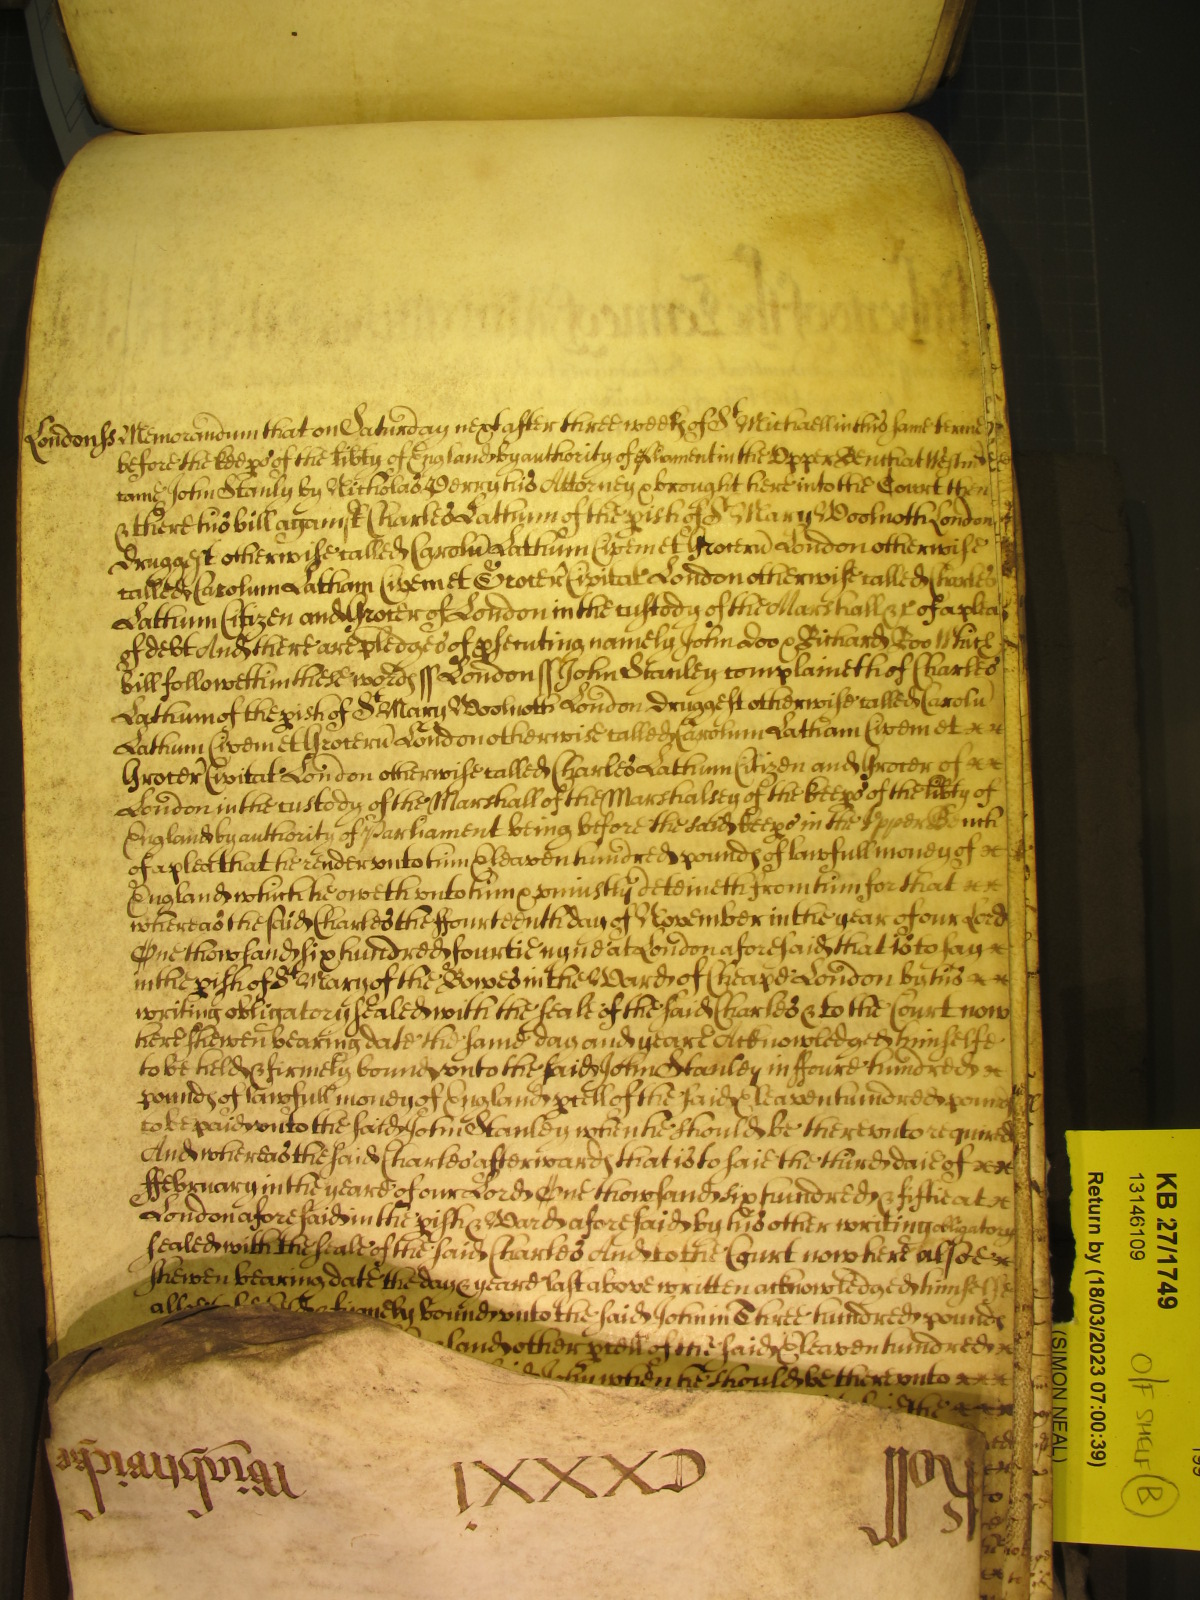 London ss Memorandum that on Saturday next after three weeks of St Michaell in this same terme
before the keeps of the libty of England by authority of Parliament in the Upper Bench at Westm
came John Stanly by Nicholas Perry his Attorney & brought here into the Court then
& there his bill against Charles Lathum of the pish of St Mary Woolnoth London
druggest otherwise called Carolu Lathum Civem et Groceru London otherwise
called Carolum Latham Civem et Grocer Civitat London otherwise called Charles
Lathum Citizen and Grocer of London in the custody of the Marshall &c of a plea
of debt And there are pledges of psecuting namely John Doo & Richard Roo Which
bill followeth in these words ss London ss John Stanley complaineth of Charles
Lathum of the pish of St Mary Woolnoth London druggest otherwise called Carolu
Lathum Civem et Groceru London otherwise called Carolum Latham Civem et
Grocer Civitat London otherwise called Charles Lathum Citizen and Grocer of
London in the custody of the Marshall of the Marshalsey of the keeps of the libty of
England by authority of Parliament being before the said keeps in the Upper Bench
of a plea that he render vnto him Eleaven hundred pounds of lawfull money of
England which he oweth vnto him & vniustly deteineth from him for that
whereas the said Charles the ffourteenth day of November in the year of our Lord
One thowsand six hundred fourtie nyne at London aforesaid that is to say
in the pish of St Mary of the Bowes in the Ward of Cheape London by his
writing obligatory sealed with the seale of the said Charles & to the Court now
here shewen bearing date the same day and yeare Acknowledged himselfe
to be held & firmely bound vnto the said John Stanley in ffoure hundred
pounds of lawfull money of England pcell of the said Eleaven hundred pounds
to be paid vnto the said John Stanley when he should be therevnto required
And whereas the said Charles afterwards that is to saie the third daie of
ffebruary in the yeare of our Lord One thowsand six hundred & fiftie at
London aforesaid in the pish & Ward aforesaid by his other writing obligatory
sealed with the seale of the said Charles And to the Court now here alsoe
shewen bearing date the day & yeare last above written acknowledged himselfe
firmely bound vnto the said John in Three hundred pounds
gland other pcell of the said Eleaven hundred
John when he should be therevnto
the
Roll
CXXXI
Wightwicke
KB 27/1749
13146109
Return by (18/03/2023 07:00:39)
(SIMON NEAL)
O/F SHELF B